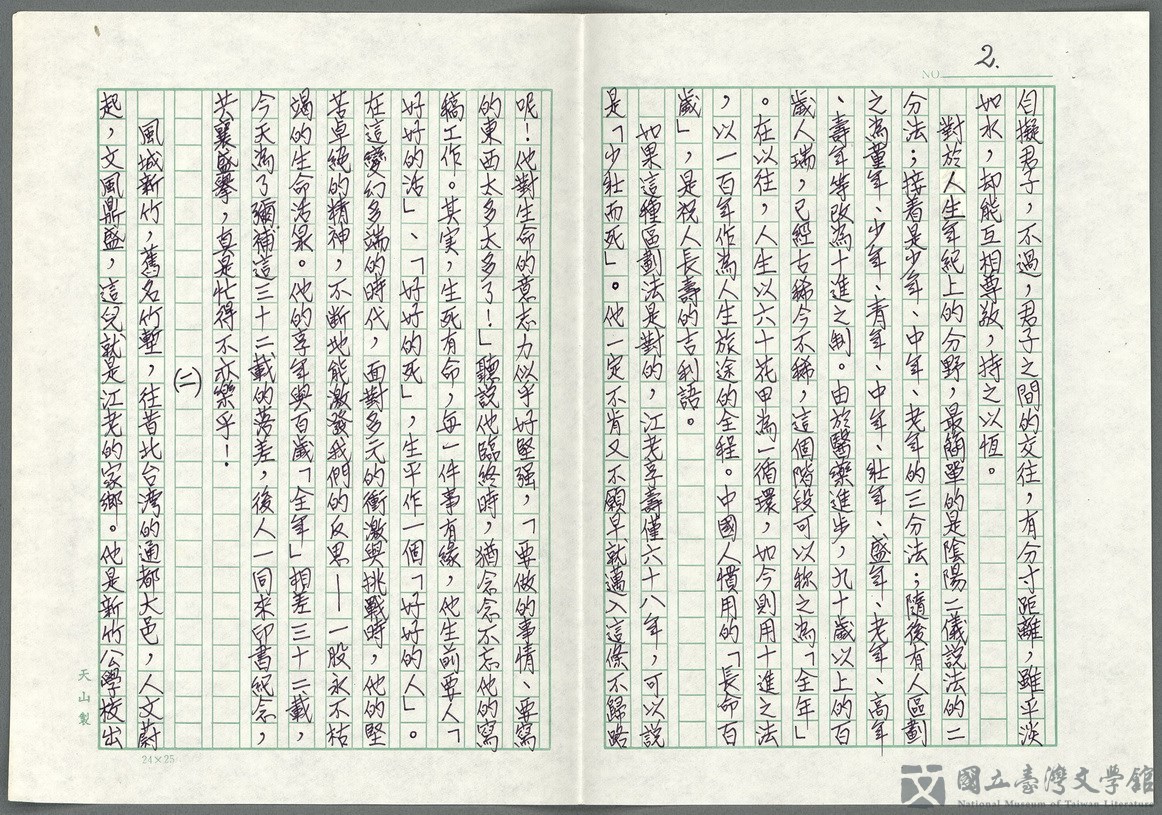 NO. 2.
自擬君子，不過，君子之間的交往，有分寸距離，雖平淡
如水，却能互相尊敬，持之以恆。
對於人生年紀上的分野，最簡單的是陰陽二儀說法的二
分法；接着是少年、中年、老年的三分法；隨後有人區劃
之為童年、少年、青年、中年、壯年、盛年、老年、高年
、壽年等改為十進之制。由於醫藥進步，九十歲以上的百
歲人瑞，已經古稀今不稀，這個階段可以稱之為「全年」
。在以往，人生以六十花甲為一循環，如今則用十進之法
，以一百年作為人生旅途的全程。中國人慣用的「長命百
歲」，是祝人長壽的吉利語。
如果這種區劃法是對的，江老享壽僅六十八年，可以說
是「少壯而死」。他一定不肯又不願早就邁入這條不歸路
呢！他對生命的意志力似乎好堅强，「要做的事情、要寫
的東西太多太多了！」聽說他臨終時，猶念念不忘他的寫
稿工作。其實，生死有命，每一件事有緣，他生前要人「
好好的活」、「好好的死」，生平作一個「好好的人」。
在這變幻多端的時代，面對多元的衝激與挑戰時，他的堅
苦卓絕的精神，不斷地能激發我們的反思——一股永不枯
竭的生命活泉。他的享年與百歲「全年」相差三十二載，
今天為了彌補這三十二載的落差，後人一同來印書紀念，
共襄盛舉，真是忙得不亦樂乎！
(二)
風城新竹，舊名竹塹，往昔北台灣的通都大邑，人文蔚
起，文風鼎盛，這兒就是江老的家鄉。他是新竹公學校出
天山製
24×25
國立臺灣文學館
National Museum of Taiwan Literature